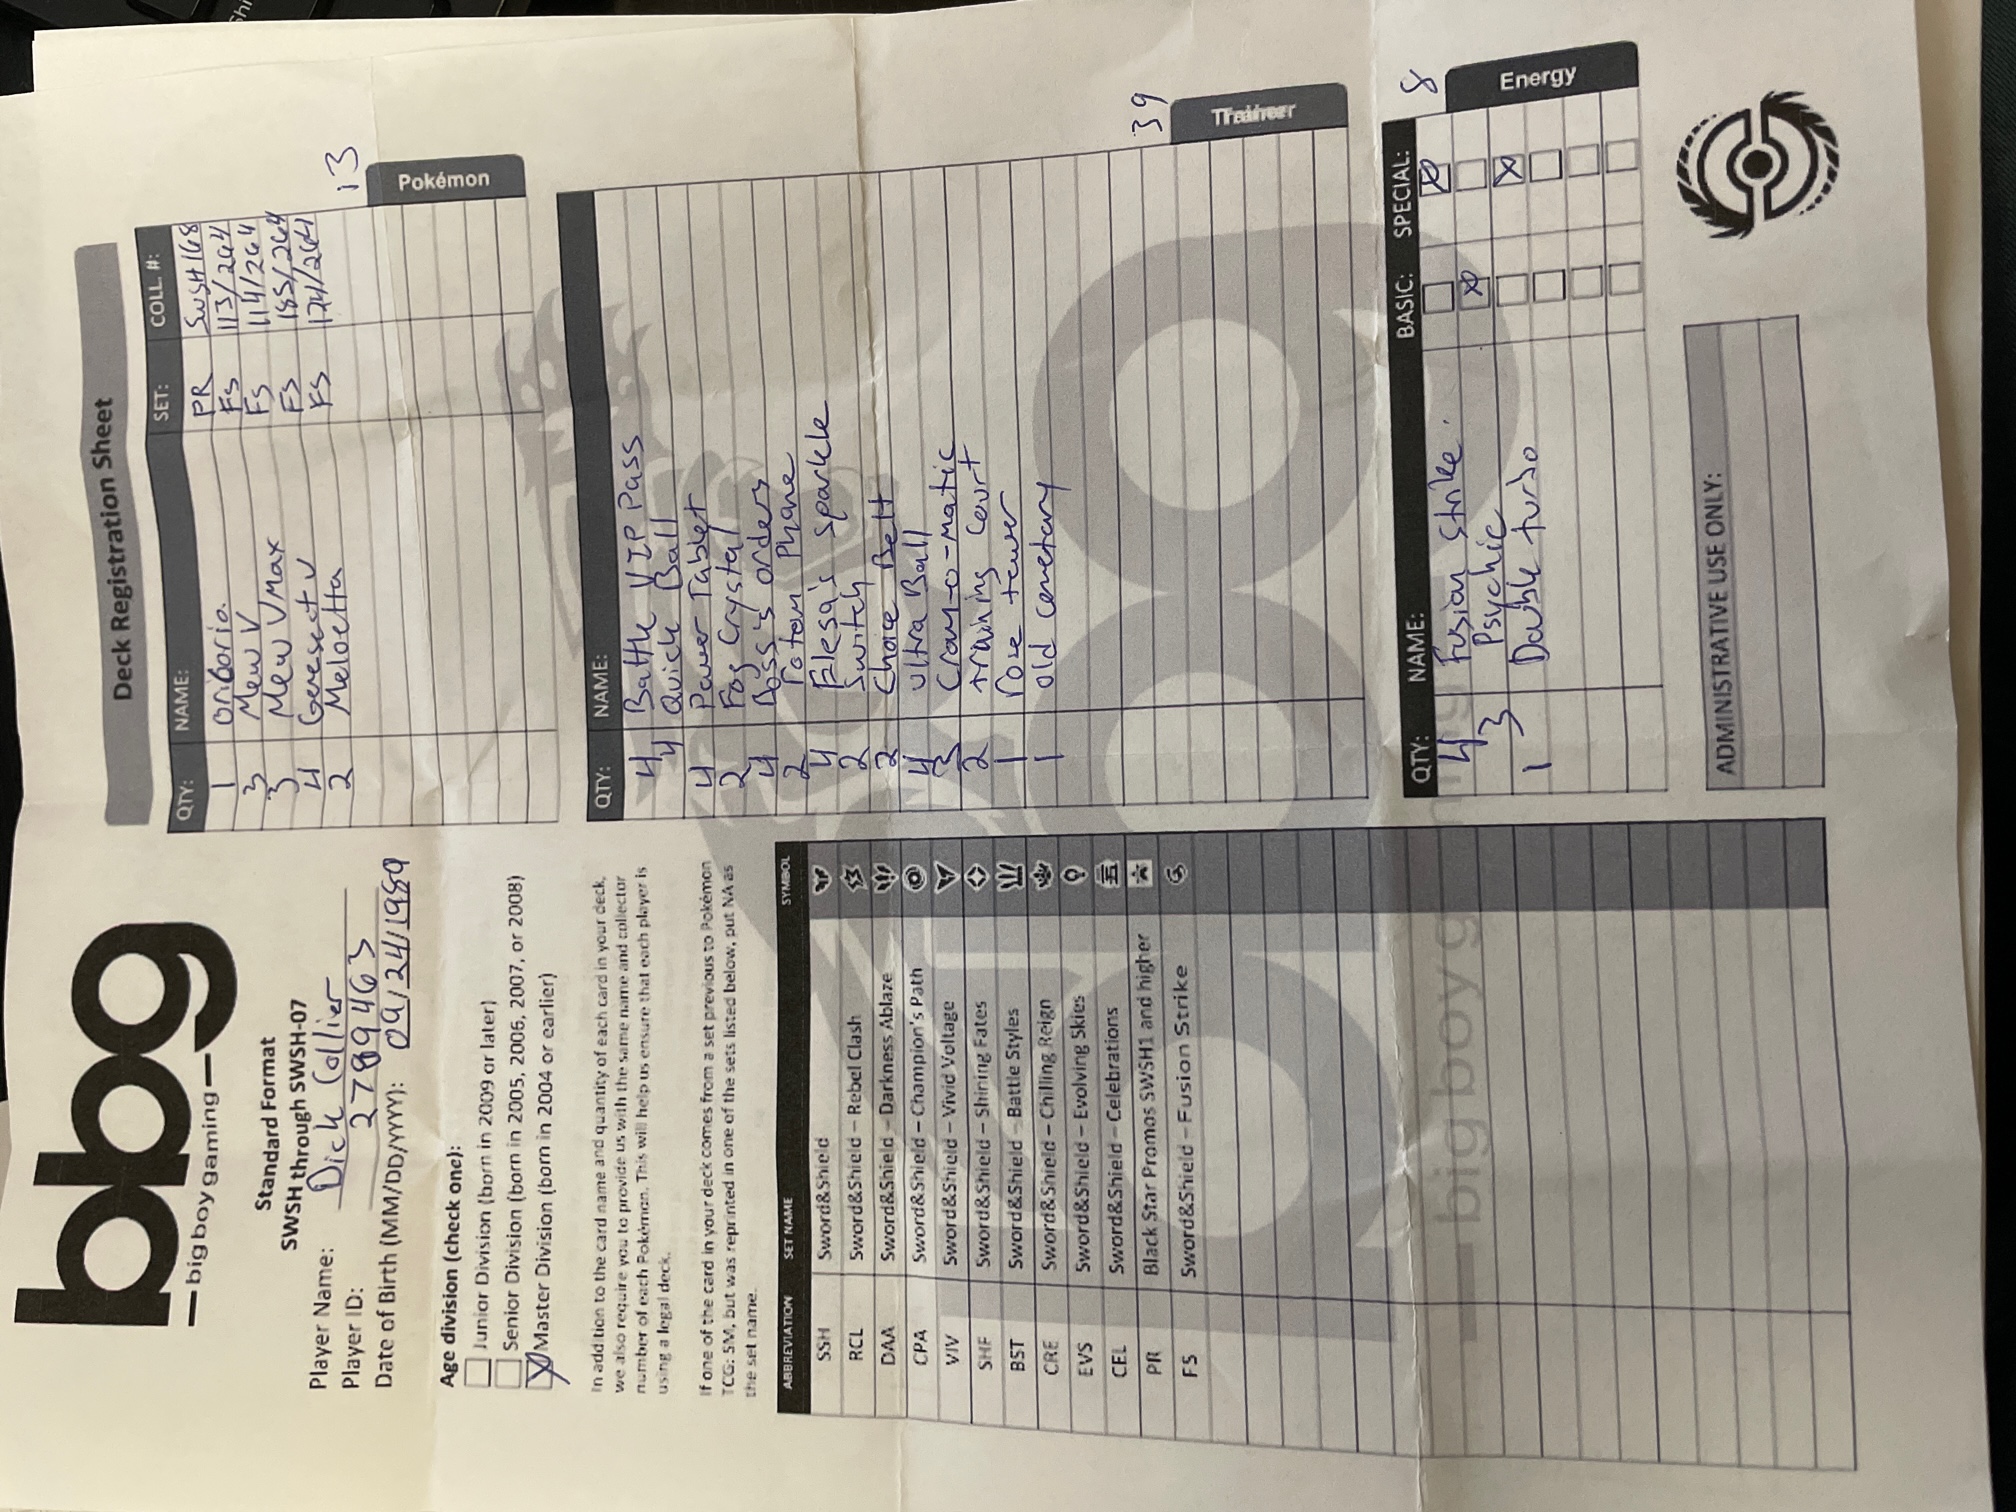 bbg
big boy gaming
Standard Format
SWSH through SWSH-07
Player Name: Dick Collier
Player ID: 2789463
Date of Birth (MM/DD/YYYY): 09/24/1989
Age division (check one):
Junior Division (born in 2009 or later)
Senior Division (born in 2005, 2006, 2007, or 2008)
X Master Division (born in 2004 or earlier)
In addition to the card name and quantity of each card in your deck,
we also require you to provide us with the same name and collector
number of each Pokémon. This will help us ensure that each player is
using a legal deck.
If one of the card in your deck comes from a set previous to Pokémon
TCG: SM, but was reprinted in one of the sets listed below, put NA as
the set name.
ABBREVIATION SET NAME SYMBOL
SSH Sword&Shield
RCL Sword&Shield – Rebel Clash
DAA Sword&Shield – Darkness Ablaze
CPA Sword&Shield – Champion's Path
VIV Sword&Shield – Vivid Voltage
SHF Sword&Shield – Shining Fates
BST Sword&Shield – Battle Styles
CRE Sword&Shield – Chilling Reign
EVS Sword&Shield – Evolving Skies
CEL Sword&Shield – Celebrations
PR Black Star Promos SWSH1 and higher
FS Sword&Shield – Fusion Strike
Deck Registration Sheet
QTY: NAME: SET: COLL. #:
1 Oricorio PR SWSH168
3 Mew V FS 113/264
3 Mew VMax FS 114/264
4 Genesect V FS 185/264
2 Meloetta FS 124/264
13
Pokémon
QTY: NAME:
4 Battle VIP Pass
4 Quick Ball
4 Power Tablet
2 Fog Crystal
4 Boss's orders
2 rotom Phone
4 Elesa's sparkle
2 Switch
2 Choice Belt
4 ultra Ball
3 Cram-o-matic
2 training court
1 rose tower
1 old cemetary
39
Trainer
QTY: NAME: BASIC: SPECIAL:
4 Fusion Strike X
3 Psychic X
1 Double turbo X
8
Energy
big boy gaming
ADMINISTRATIVE USE ONLY: